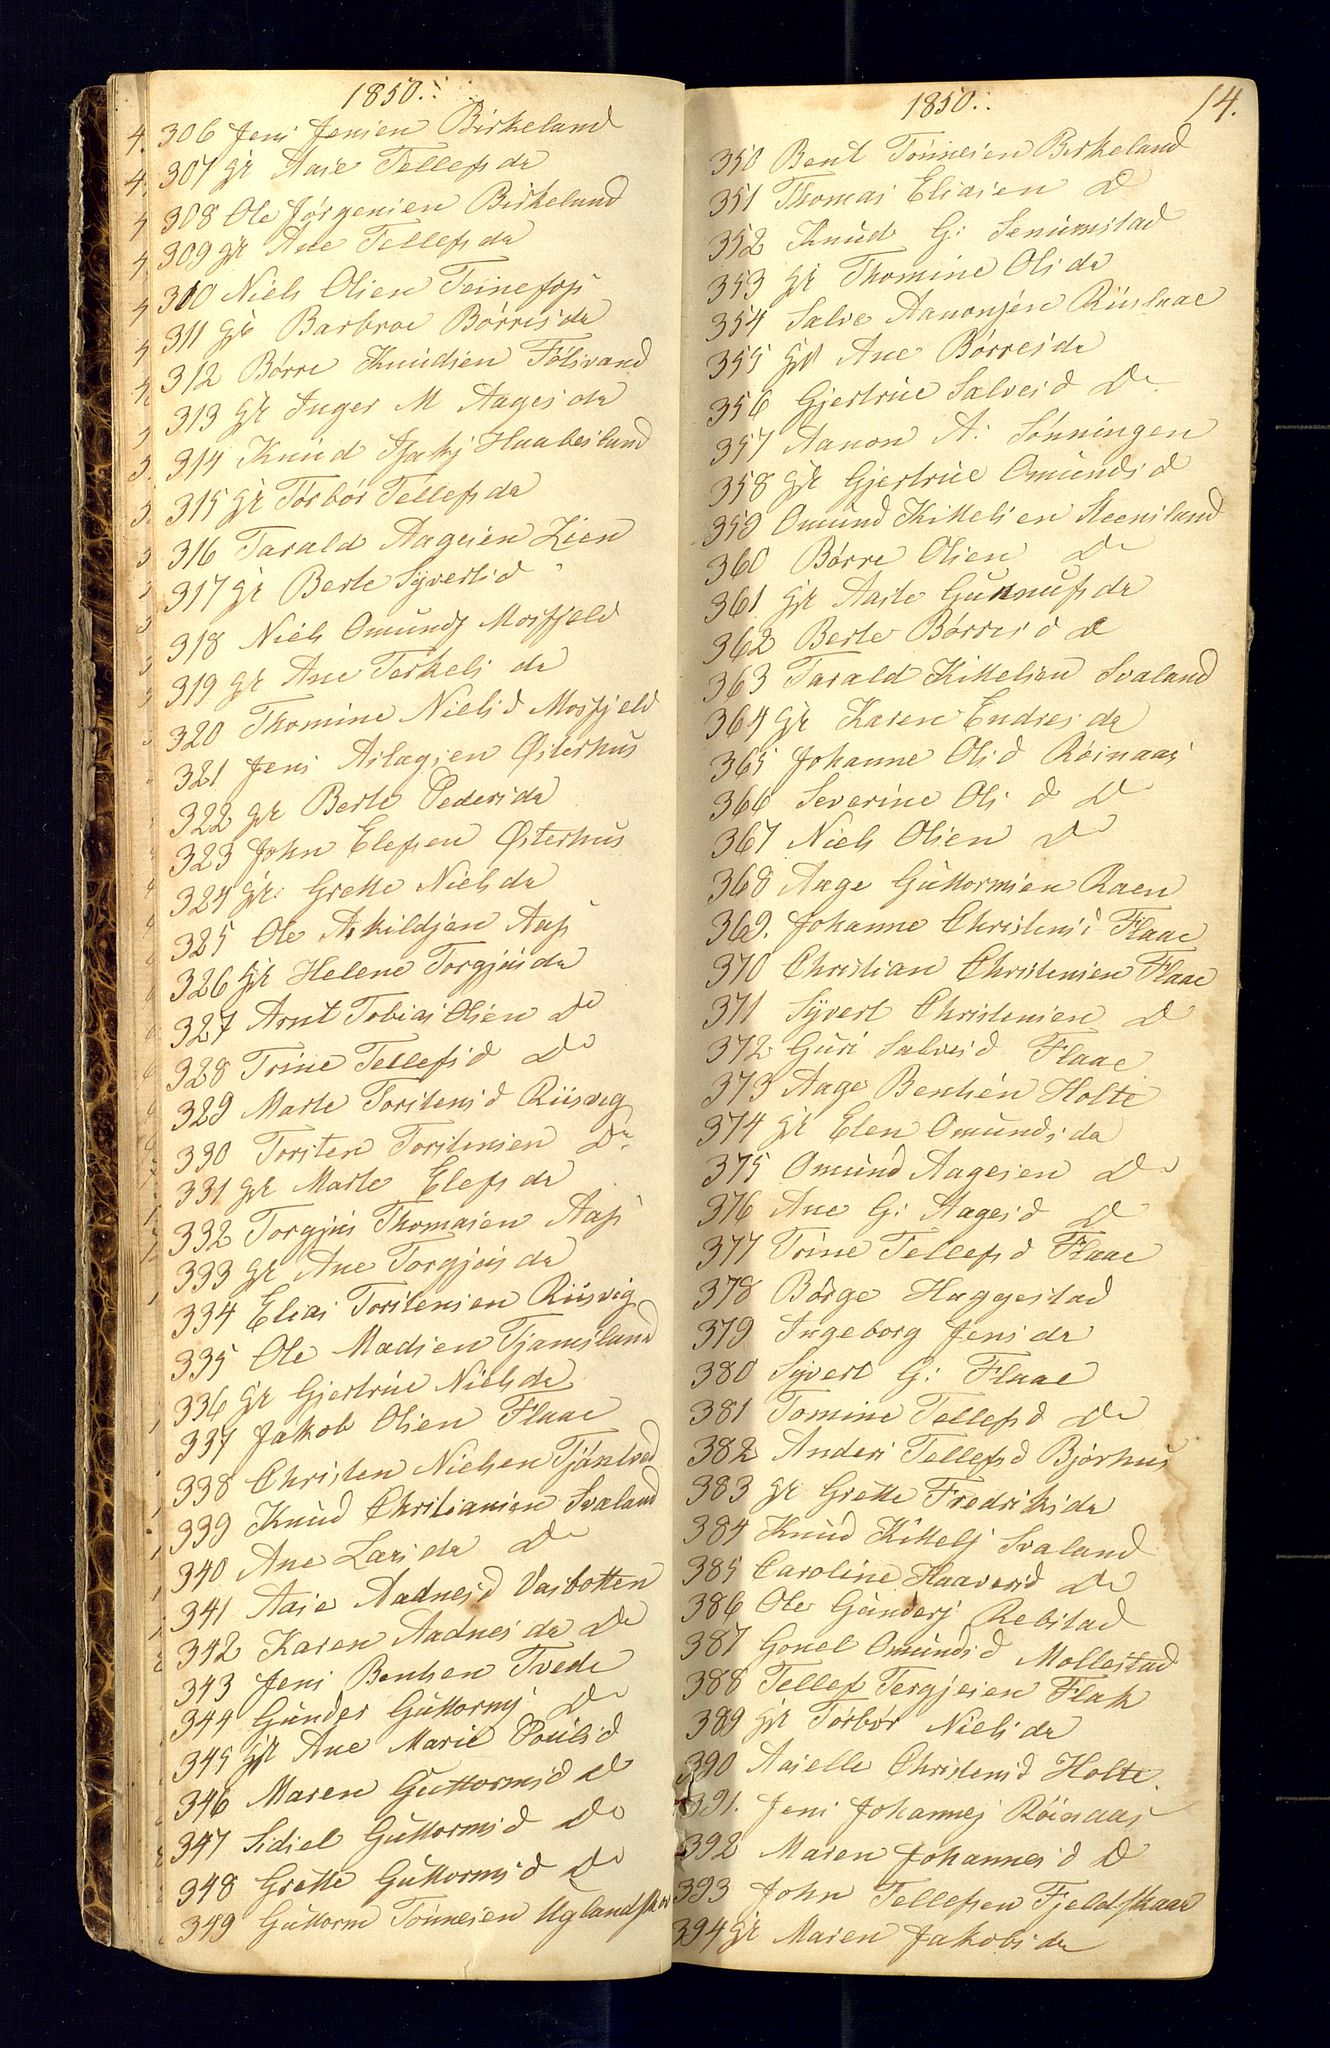 1850.
306 Jens Jensen Birkeland
307 gr Aase Tellefsda
308 Ole Jørgensen Birkeland
309 gr Ane Tellefsda
310 Niels Olsen Teinefoss
311 gr Barbroe Børresda
312 Børre Knudsen Følsvand
313 gr Inger M Aagesda
314 Knud Isaks Haabesland
315 gr Torbør Tellefsda
316 Tarald Aagesen Lien
317 gr Berte Syvertsd
318 Niels Omunds Mosfjeld
319 gr Ane Terkelsda
320 Thomine Nielsd Mosfjeld
321 Jens Aslagsen Østerhus
322 gr Berte Pedersda
323 John Elefsen Østerhus
324 gr: Grette Nielsda
325 Ole Askildsen Aas
326 gr Helene Torgjusda
327 Arnt Tobias Olsen Do
328 Trine Tellefsd Do
329 Marte Torstensd Riisvig
330 Torsten Torstensen Do
331 gr Marte Elefsda
332 Torgjus Thomasen Aas
333 gr Ane Torgjusda
334 Elias Torstensen Riisvig
335 Ole Madsen Tjamsland
336 gr Gjertrue Nielsda
337 Jakob Olsen Flaae
338 Christen Nielsen
339 Knud Christiansen Svaland
340 Ane Larsda Do
341 Aase Aadnesd Vasbotten
342 Karen Aadnesda Do
343 Jens Bentsen Tvede
344 Gunder Guttorms Do
345 gr Ane Marie Poulsd
346 Maren Guttormsd Do
347 Sidsel Guttormsd Do
348 Grette Guttormsd Do
349 Guttorm Tønnesen Uglandskar
1850. 14.
350 Bent Tønnesen Birkeland
351 Thomas Eliasen Do
352 Knud G: Senumstad
353 gr Thomine Olsda
354 Salve Aanonsen Riislaae
355 gr Ane Børresda
356 Gjertrue Salvesd Do
357 Aanon A: Sønningen
358 gr Gjertrue Omundsd
359 Omund Kittelsen Steensland
360 Børre Olsen Do
361 gr Aaste Gunnufsda
362 Berte Børresd Do
363 Tarald Kittelsen Svaland
364 gr Karen Endresda
365 Johanne Olsd Røinaas
366 Severine Olsd Do
367 Niels Olsen Do
368 Aage Guttormsen Raen
369. Johanne Christensd Flaae
370 Christian Christensen Flaae
371 Syvert Christensen Do
372 Guri Salvesd Flaae
373 Aage Bentsen Holte
374 gr Elen Omundsda
375 Omund Aagesen Do
376 Ane G: Aagesd Do
377 Trine Tellefsd Flaae
378 Børge Haggestad
379 Ingeborg Jensda
380 Syvert G: Flaae
381 Tomine Tellefsd Do
382 Anders Tellefsd Bjorhus
383 gr Grette Fredriksda
384 Knud Kittels Svaland
385 Caroline Haaversd Do
386 Ole Gunders Rebstad
387 Gonel Omundsd Mollestad
388 Tellef Tergjesen Flak
389 gr Torbør Nielsda
390 Aaselle Christensd Holte.
391. Jens Johannes Røinaas
392 Maren Johannesd Do
393 John Tellefsen Fjeldskaar
394 gr Maren Jakobsda